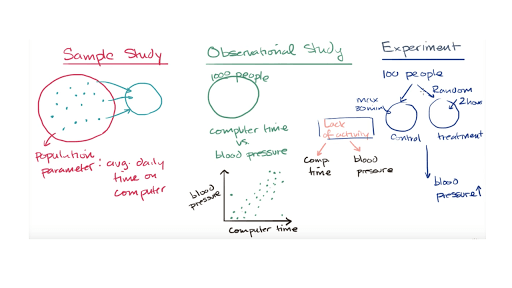 Sample Study
Population
parameter: avg. daily
time on
computer
Observational Study
1000 people
computer time
vs.
blood pressure
Lack
of activity
comp
time
blood
pressure
blood
pressure
computer time
Experiment
100 people
Random
max
30min
2 hour
Control
treatment
blood
pressure↑